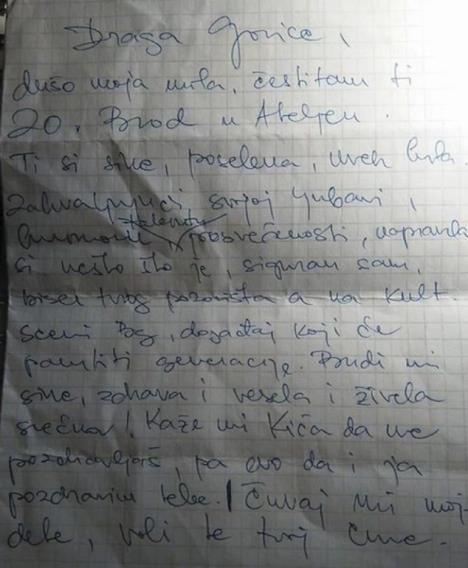 Draga Gorice,
dušo moja mila, čestitam ti
20. Brod u Ateljeu.
Ti si sine, posebna, uvek bila.
Zahvaljujući svojoj ljubavi,
talentu
posvećenosti, napravila
si nešto što je, siguran sam,
biser tvog pozorišta a na kult.
sceni Bg, događaj koji će
pamtiti generacije. Budi mi
sine, zdrava i vesela i živela
srećna! Kaže mi Kića da me
pozdravljaš, pa evo da i ja
pozdravim tebe. Čuvaj mi moje
dete, voli te tvoj